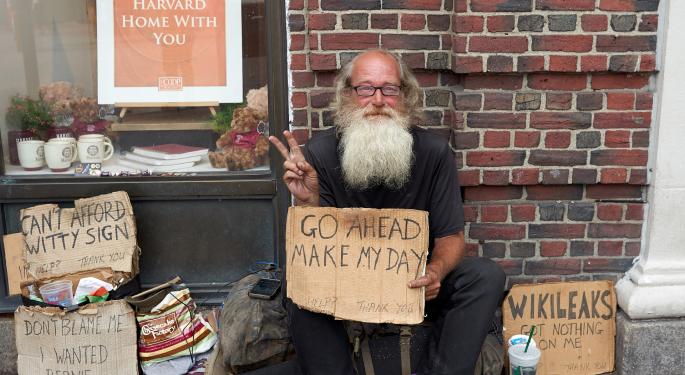 HARVARD
HOME WITH
YOU
CAN'T AFFORD
WITTY SIGN
HELP? THANK YOU
DON'T BLAME ME
I WANTED
BERNIE
GO AHEAD
MAKE MY DAY
HELP? THANK YOU
WIKILEAKS
GOT NOTHING
ON ME
THANK YOU